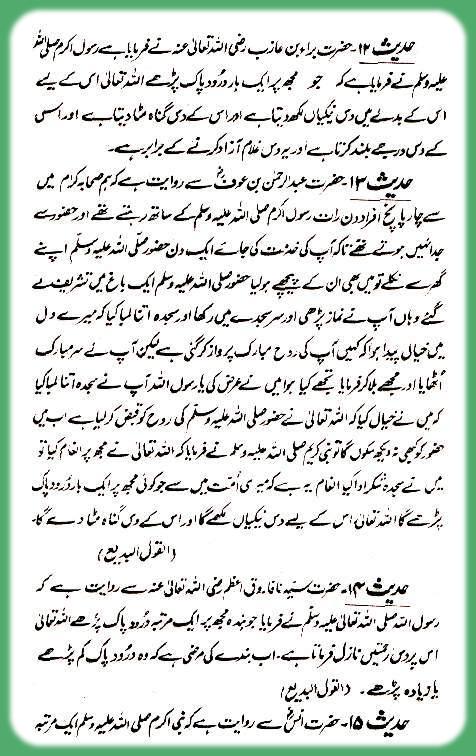 حدیث ۱۲۔ حضرت براء بن عازب رضی اللہ تعالیٰ عنہ نے فرمایا ہے رسول اکرم صلی اللہ
علیہ وسلم نے فرمایا ہے کہ جو مجھ پر ایک بار درود پاک پڑھے اللہ تعالیٰ اس کے لیے
اس کے بدلے میں دس نیکیاں لکھ دیتا ہے اور اس کے دس گناہ مٹا دیتا ہے اور اس
کے دس درجے بلند کرتا ہے اور یہ دس غلام آزاد کرنے کے برابر ہے۔
حدیث ۱۳۔ حضرت عبدالرحمٰن بن عوفؓ سے روایت ہے کہ ہم صحابہ کرام میں
سے چار پانچ افراد دن رات رسول اکرم صلی اللہ علیہ وسلم کے ساتھ رہتے تھے اور حضور سے
جدا نہیں ہوتے تھے تاکہ آپ کی خدمت کی جائے ایک دن حضور صلی اللہ علیہ وسلم اپنے
گھر سے نکلے تو میں بھی ان کے پیچھے ہولیا حضور صلی اللہ علیہ وسلم ایک باغ میں تشریف لے
گئے وہاں آپ نے نماز پڑھی اور سر سجدے میں رکھا اور سجدہ اتنا لمبا کیا کہ میرے دل
میں خیال پیدا ہوا کہ کہیں آپ کی روح مبارک پرواز کر گئی ہے لیکن آپ نے سر مبارک
اٹھایا اور مجھے بلا کر فرمایا تجھے کیا ہوا میں نے عرض کی یا رسول اللہ آپ نے سجدہ اتنا لمبا کیا
کہ میں نے خیال کیا کہ اللہ تعالیٰ نے حضور صلی اللہ علیہ وسلم کی روح کو قبض کر لیا ہے اب میں
حضور کو کبھی نہ دیکھ سکوں گا تو نبی کریم صلی اللہ علیہ وسلم نے فرمایا کہ اللہ تعالیٰ نے مجھ پر انعام کیا تو
میں نے سجدہ شکر ادا کیا انعام یہ ہے کہ میری امت میں سے جو کوئی مجھ پر ایک بار درود پاک
پڑھے گا اللہ تعالیٰ اس کے لیے دس نیکیاں لکھے گا اور اس کے دس گناہ مٹا دے گا۔
(القول البدیع)
حدیث ۱۴۔ حضرت سیدنا فاروق اعظم رضی اللہ تعالیٰ عنہ سے روایت ہے کہ
رسول اللہ صلی اللہ تعالیٰ علیہ وسلم نے فرمایا جو بندہ مجھ پر ایک مرتبہ درود پاک پڑھے اللہ تعالیٰ
اس پر دس رحمتیں نازل فرماتا ہے۔ اب بندے کی مرضی ہے کہ وہ درود پاک کم پڑھے
یا زیادہ پڑھے۔ (القول البدیع)
حدیث ۱۵۔ حضرت انسؓ سے روایت ہے کہ نبی اکرم صلی اللہ علیہ وسلم ایک مرتبہ